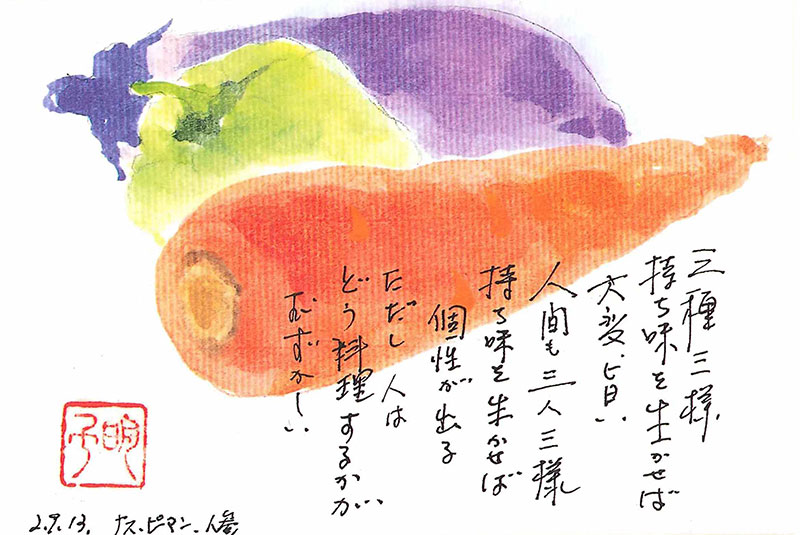 三種三様
持ち味を生かせば
大変旨い
人間も三人三様
持ち味を生かせば
個性が出る
ただし人は
どう料理するかが
むずかしい
2.9.13. ナス.ピマン.人参